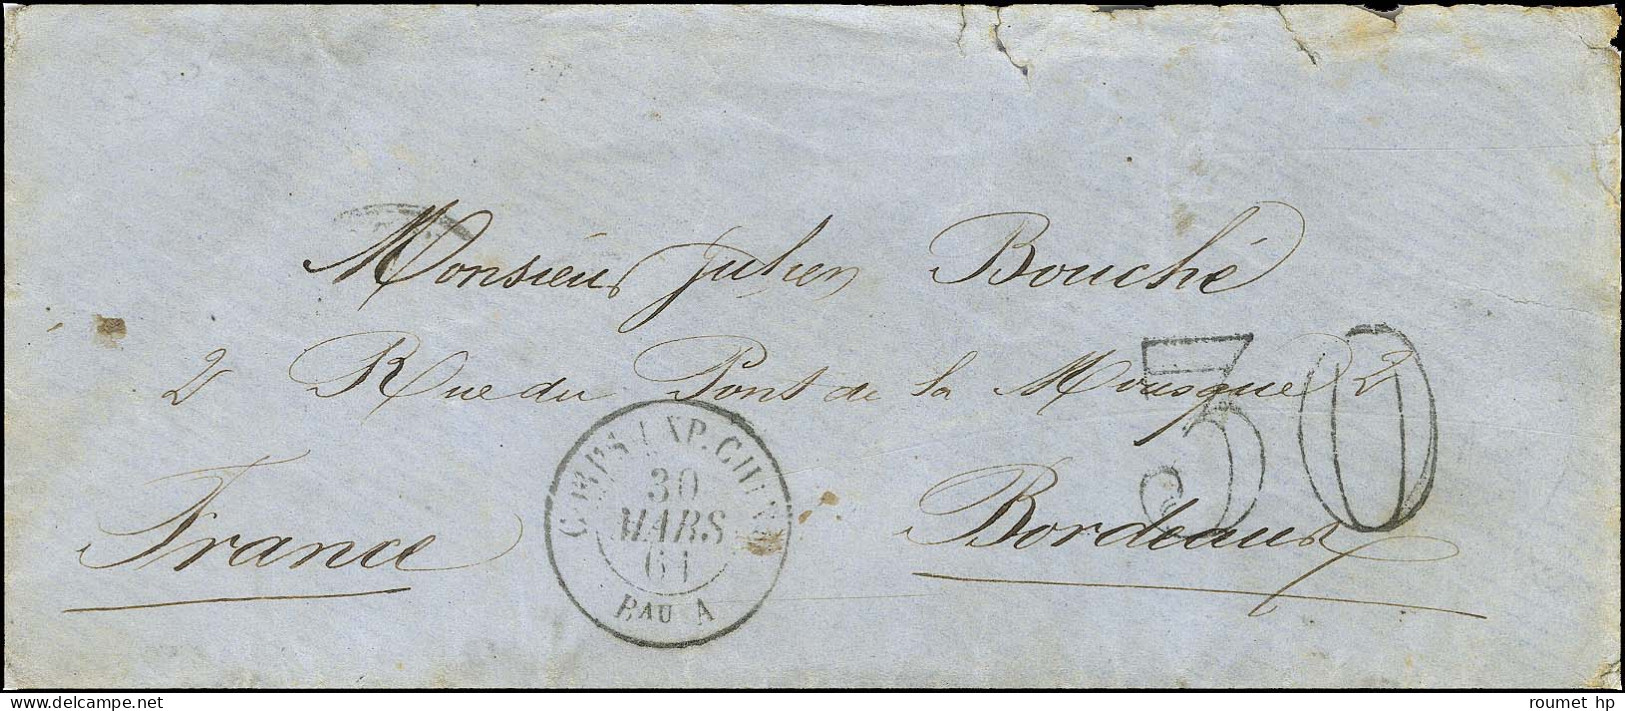 Monsieur Julien Bouché
2 Rue du Pont de la Mousque 2
30
France
Bordeaux
CORPS EXP. CHINE
30
MARS
61
BAU A
roumet hp